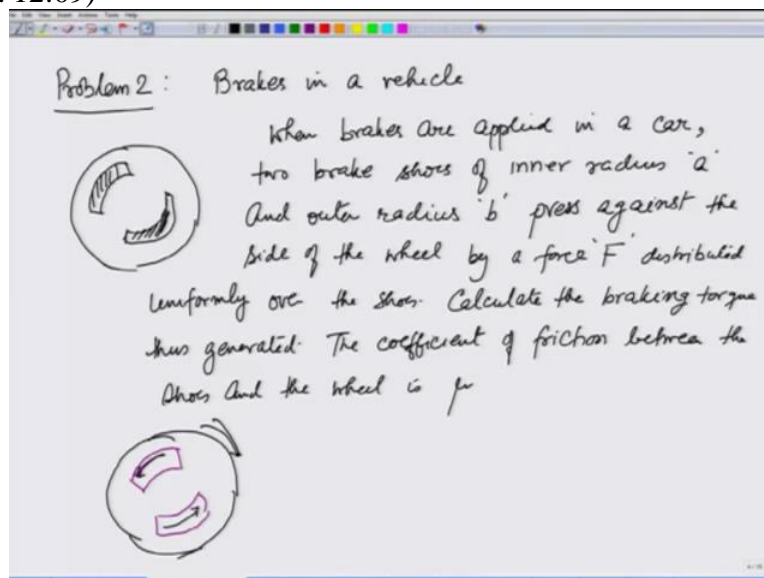 12:09)
Problem 2 : Brakes in a vehicle
When brakes are applied in a car,
two brake shoes of inner radius 'a'
and outer radius 'b' press against the
side of the wheel by a force 'F' distributed
uniformly over the shoes. Calculate the braking torque
thus generated. The coefficient of friction between the
shoes and the wheel is μ